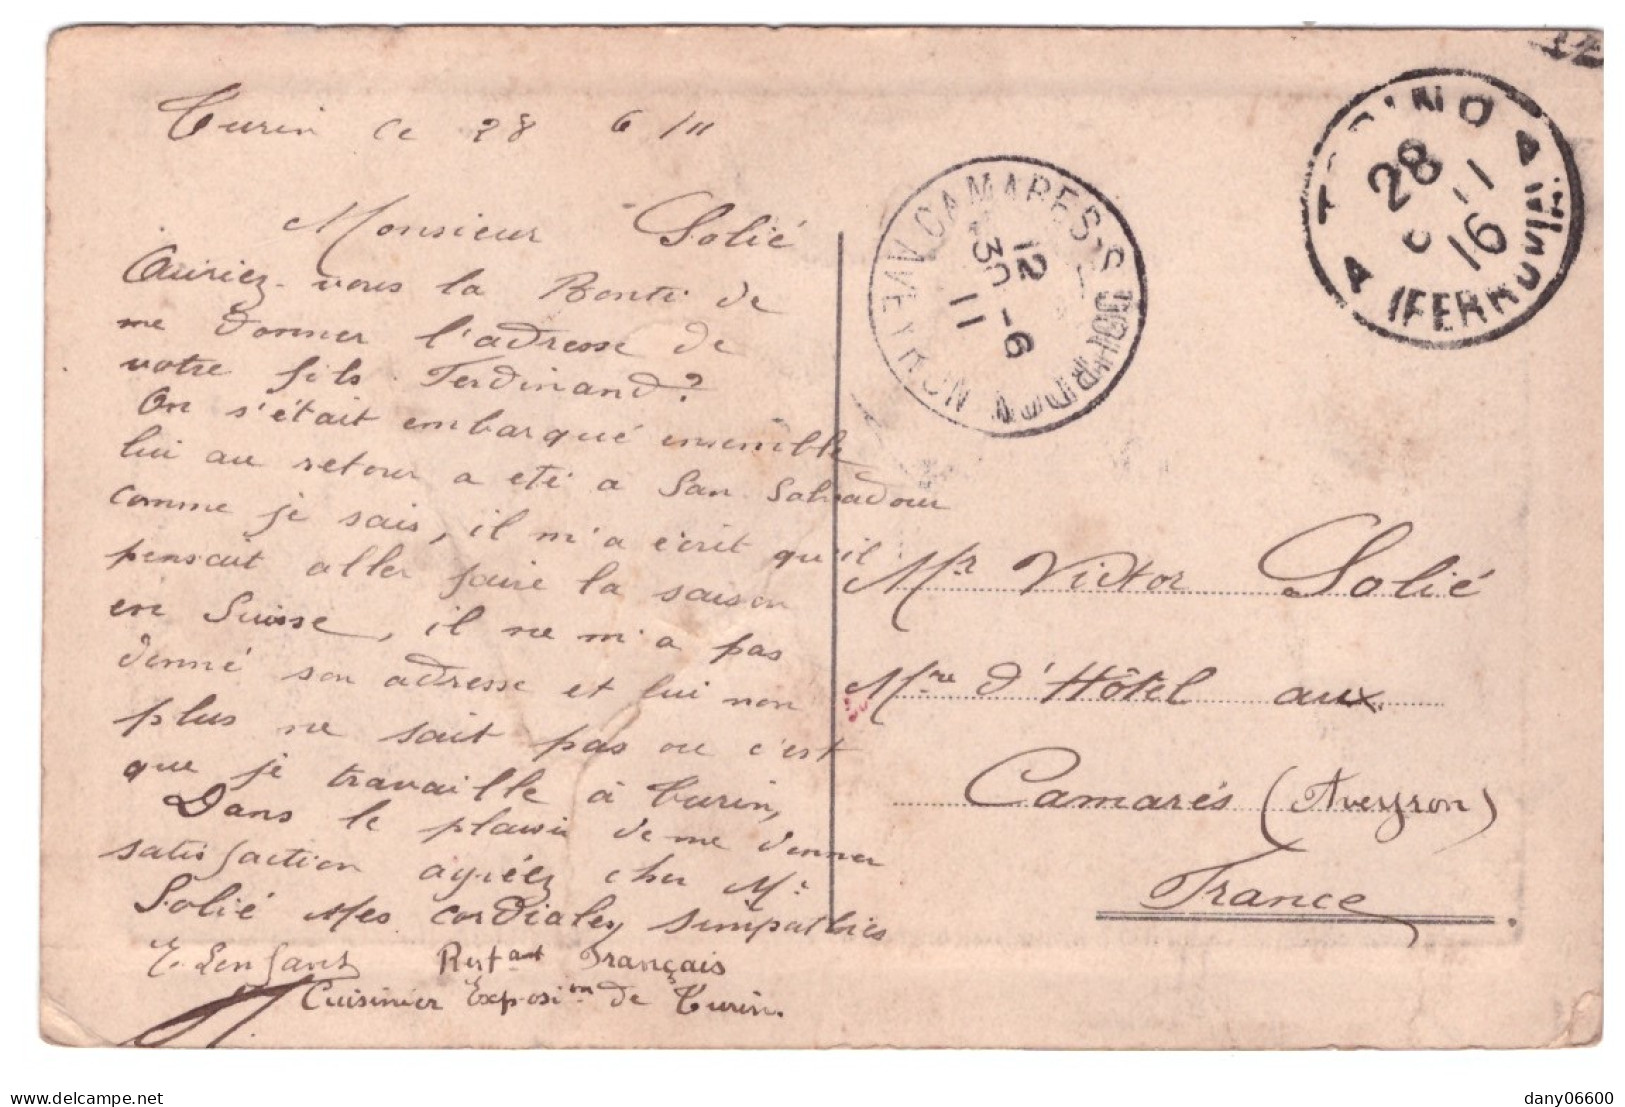 Turin ce 28 6/11
Monsieur Solié
Auriez-vous la Bonté de
me donner l'adresse de
votre fils Ferdinand?
On s'était embarqué ensemble
lui au retour a eté a San Salvadour
comme je sais, il m'a écrit qu'il
pensait aller faire la saison
en Suisse, il ne m'a pas
donné son adresse et lui non
plus ne sait pas ou c'est
que je travaille à Turin,
Dans le plaisir de me donner
satisfaction agréez cher Mr
Solié Mes cordiales simpathies
E. Lenfant Restant Français
Cuisinier Exposion de Turin.
CAMARES
AVEYRON
12
30 -6
11
TORINO
28
6 11
16
(FERROVIA)
Mr Victor Solié
Mre d'Hôtel aux
Camarés (Aveyron)
France
dany06600